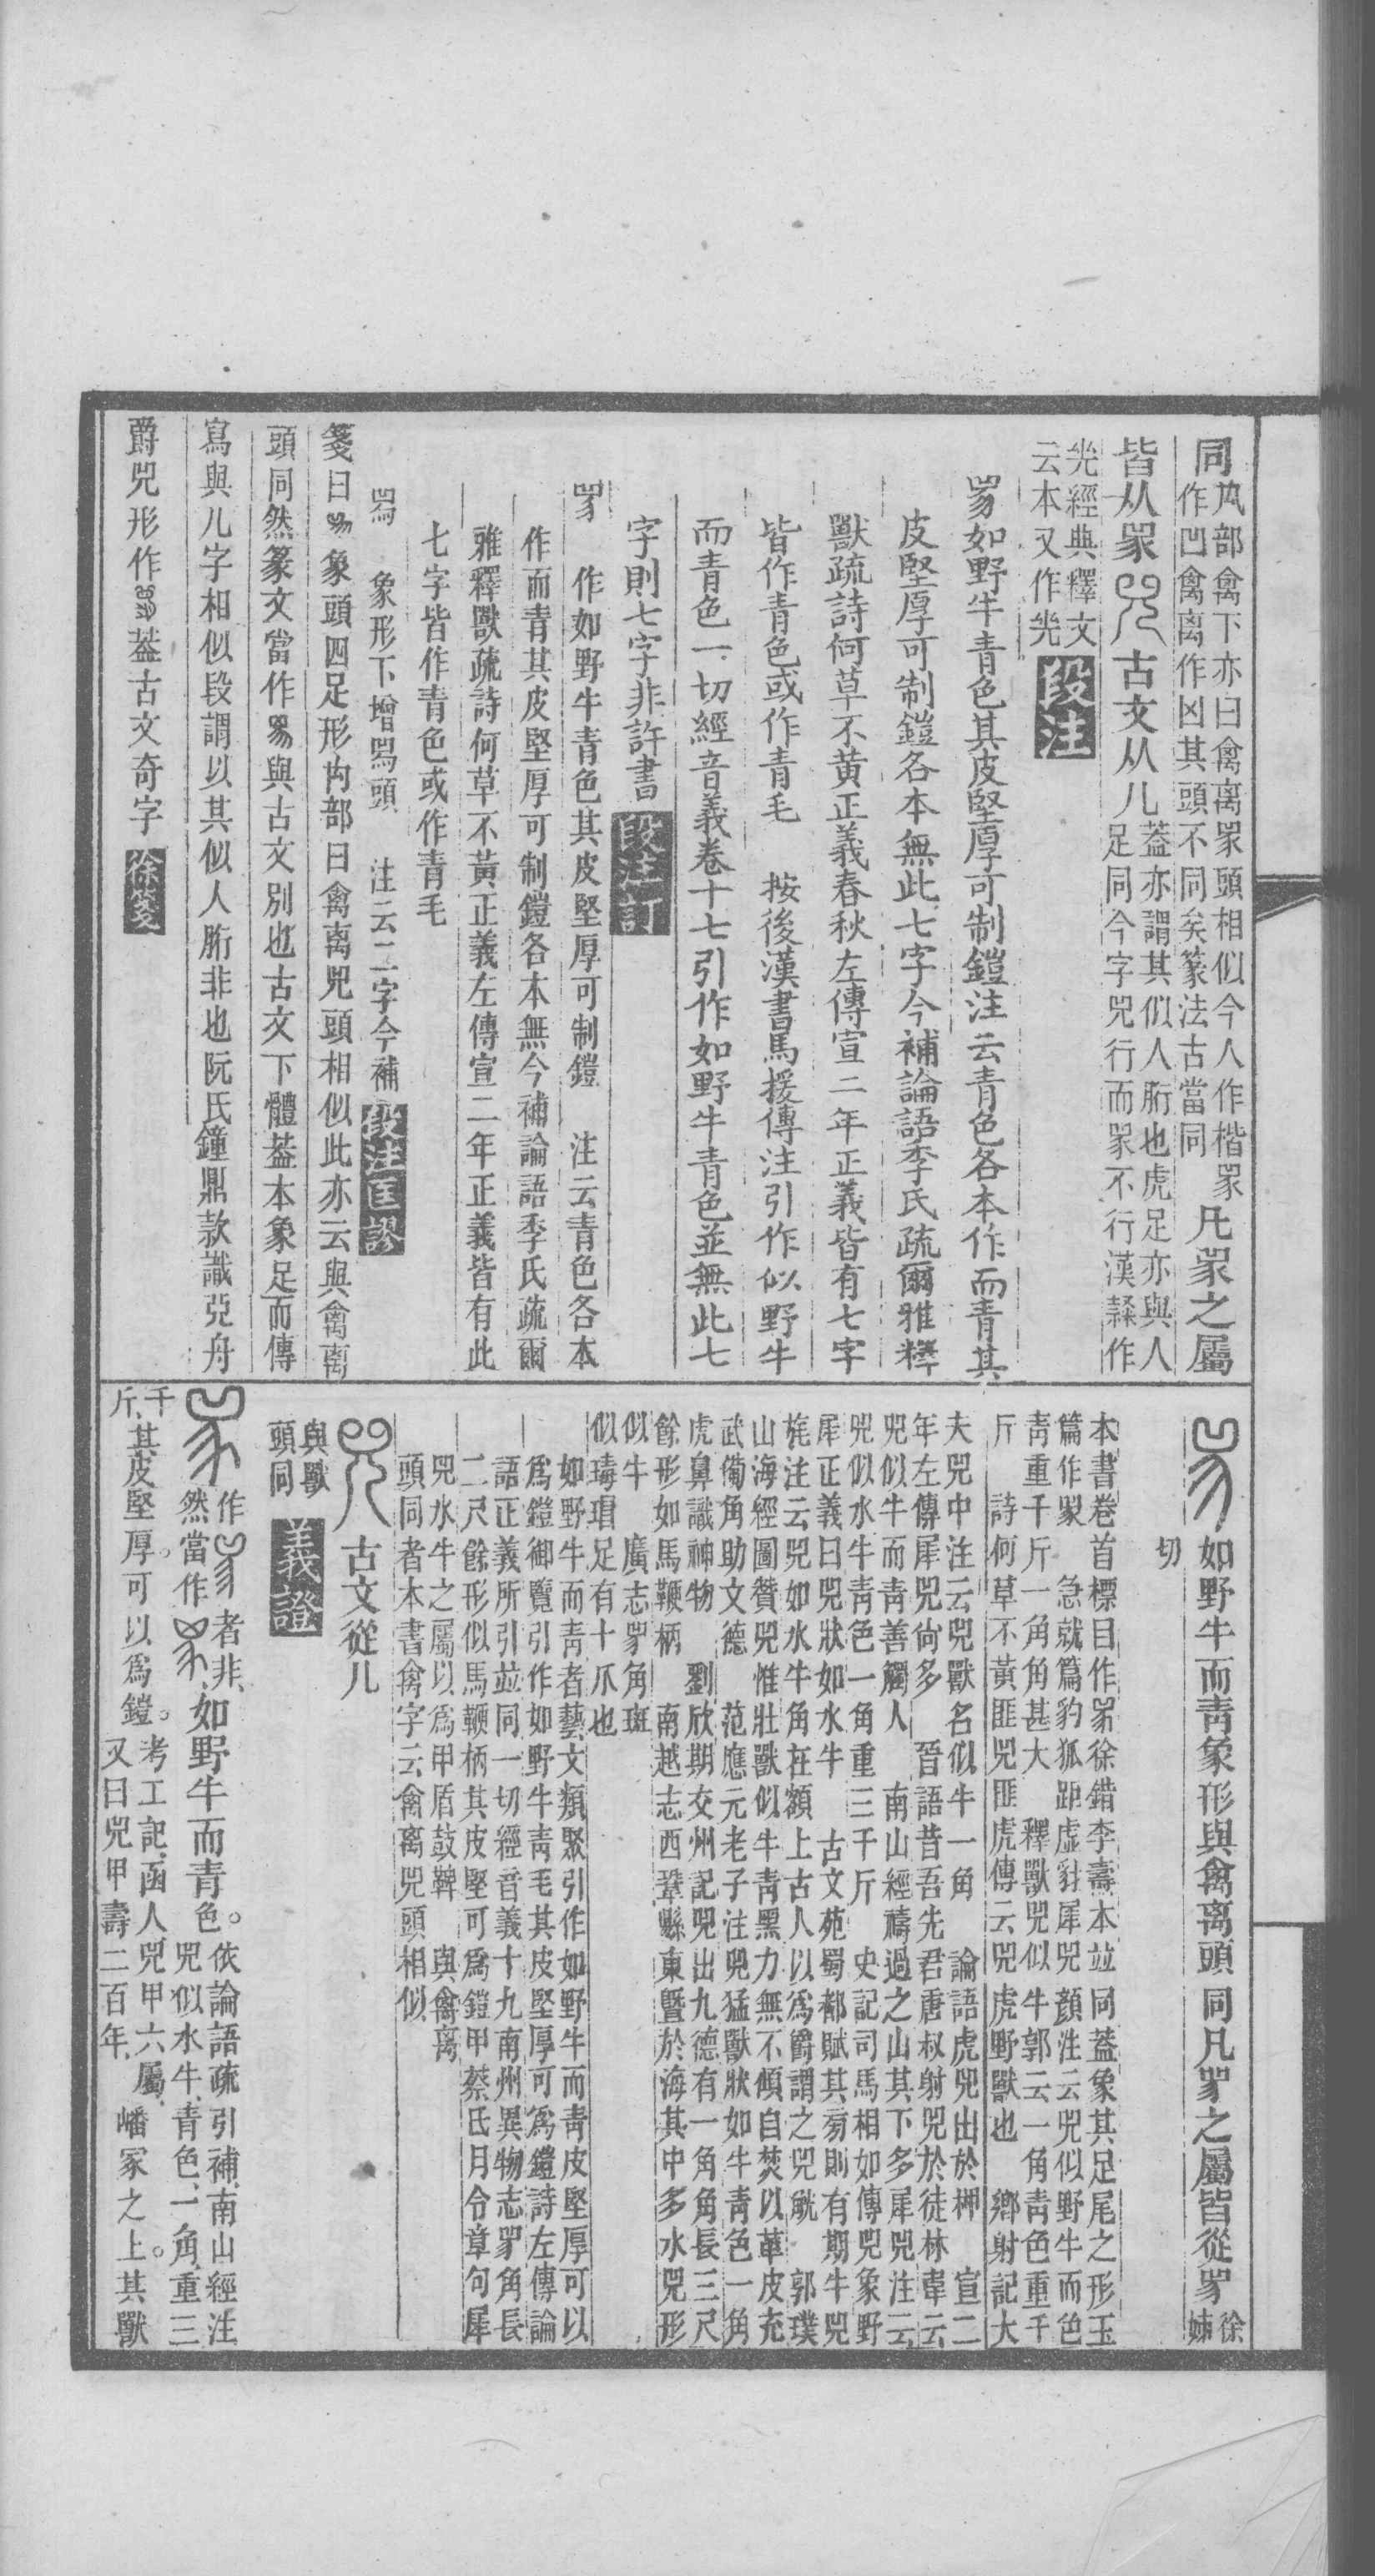 同
禸部禽下亦曰禽离𤉡頭相似今人作楷𤉡
作凹禽离作凶其頭不同矣篆法古當同
凡𤉡之屬
皆从𤉡
古文从儿
蓋亦謂其似人胻也虎足亦與人
足同今字兕行而𤉡不行漢隸作
光經典釋文
云本又作光
段注
𤉡如野牛青色其皮堅厚可制鎧注云青色各本作而青其
皮堅厚可制鎧各本無此七字今補論語季氏疏爾雅釋
獸疏詩何草不黄正義春秋左傳宣二年正義皆有七字
皆作青色或作青毛 按後漢書馬援傳注引作似野牛
而青色一切經音義卷十七引作如野牛青色並無此七
字則七字非許書
段注訂
𤉡 作如野牛青色其皮堅厚可制鎧 注云青色各本
作而青其皮堅厚可制鎧各本無今補論語季氏疏爾
雅釋獸疏詩何草不黃正義左傳宣二年正義皆有此
七字皆作青色或作青毛
象形下增𤉡頭 注云二字今補
段注匡謬
箋曰 象頭四足形禸部曰禽离兕頭相似此亦云與禽离
頭同然篆文當作 與古文別也古文下體葢本象足而傳
寫與儿字相似段謂以其似人胻非也阮氏鐘鼎款識亞舟
爵兕形作 葢古文奇字
徐箋
如野牛而青象形與禽离頭同凡𤉡之屬皆從𤉡
徐姊
切
本書卷首標目作𤉡徐鍇李燾本並同蓋象其足尾之形玉
篇作𤉡 急就篇豹狐距虛豺犀兕顏注云兕似野牛而色
青重千斤一角角甚大 釋獸兕似牛郭云一角青色重千
斤 詩何草不黃匪兕匪虎傳云兕虎野獸也 鄉射記大
夫兕中注云兕獸名似牛一角 論語虎兕出於柙 宣二
年左傳犀兕尙多 晉語昔吾先君唐叔射兕於徒林韋云
兕似牛而青善觸人 南山經禱過之山其下多犀兕注云
兕似水牛青色一角重三千斤 史記司馬相如傳兕象野
犀正義曰兕狀如水牛 古文苑蜀都賦其旁則有期牛兕
旄注云兕如水牛角在額上古人以爲爵謂之兕觥 郭璞
山海經圖贊兕惟壯獸似牛青黑力無不傾自焚以革皮充
武備角助文德 范應元老子注兕猛獸狀如牛青色一角
虎鼻識神物 劉欣期交州記兕出九德有一角角長三尺
餘形如馬鞭柄 南越志西鞏縣東暨於海其中多水兕形
似牛 廣志𤉡角斑
似瑇瑁足有十爪也
如野牛而青者藝文類聚引作如野牛而青皮堅厚可以
爲鎧御覽引作如野牛青毛其皮堅厚可爲鎧詩左傳論
語正義所引並同一切經音義十九南州異物志𤉡角長
二尺餘形似馬鞭柄其皮堅可爲鎧甲蔡氏月令章句犀
兕水牛之屬以爲甲盾鼓鞞 與禽离
頭同者本書禽字云禽离兕頭相似
古文從儿
與獸
頭同
義證
作 者非
然當作
如野牛而青色。
依論語疏引補南山經注
兕似水牛、青色、一角、重三
千
斤、其皮堅厚。可以爲鎧。
考工記、函人、兕甲六屬、
又曰兕甲壽二百年、
嶓冢之上。其獸